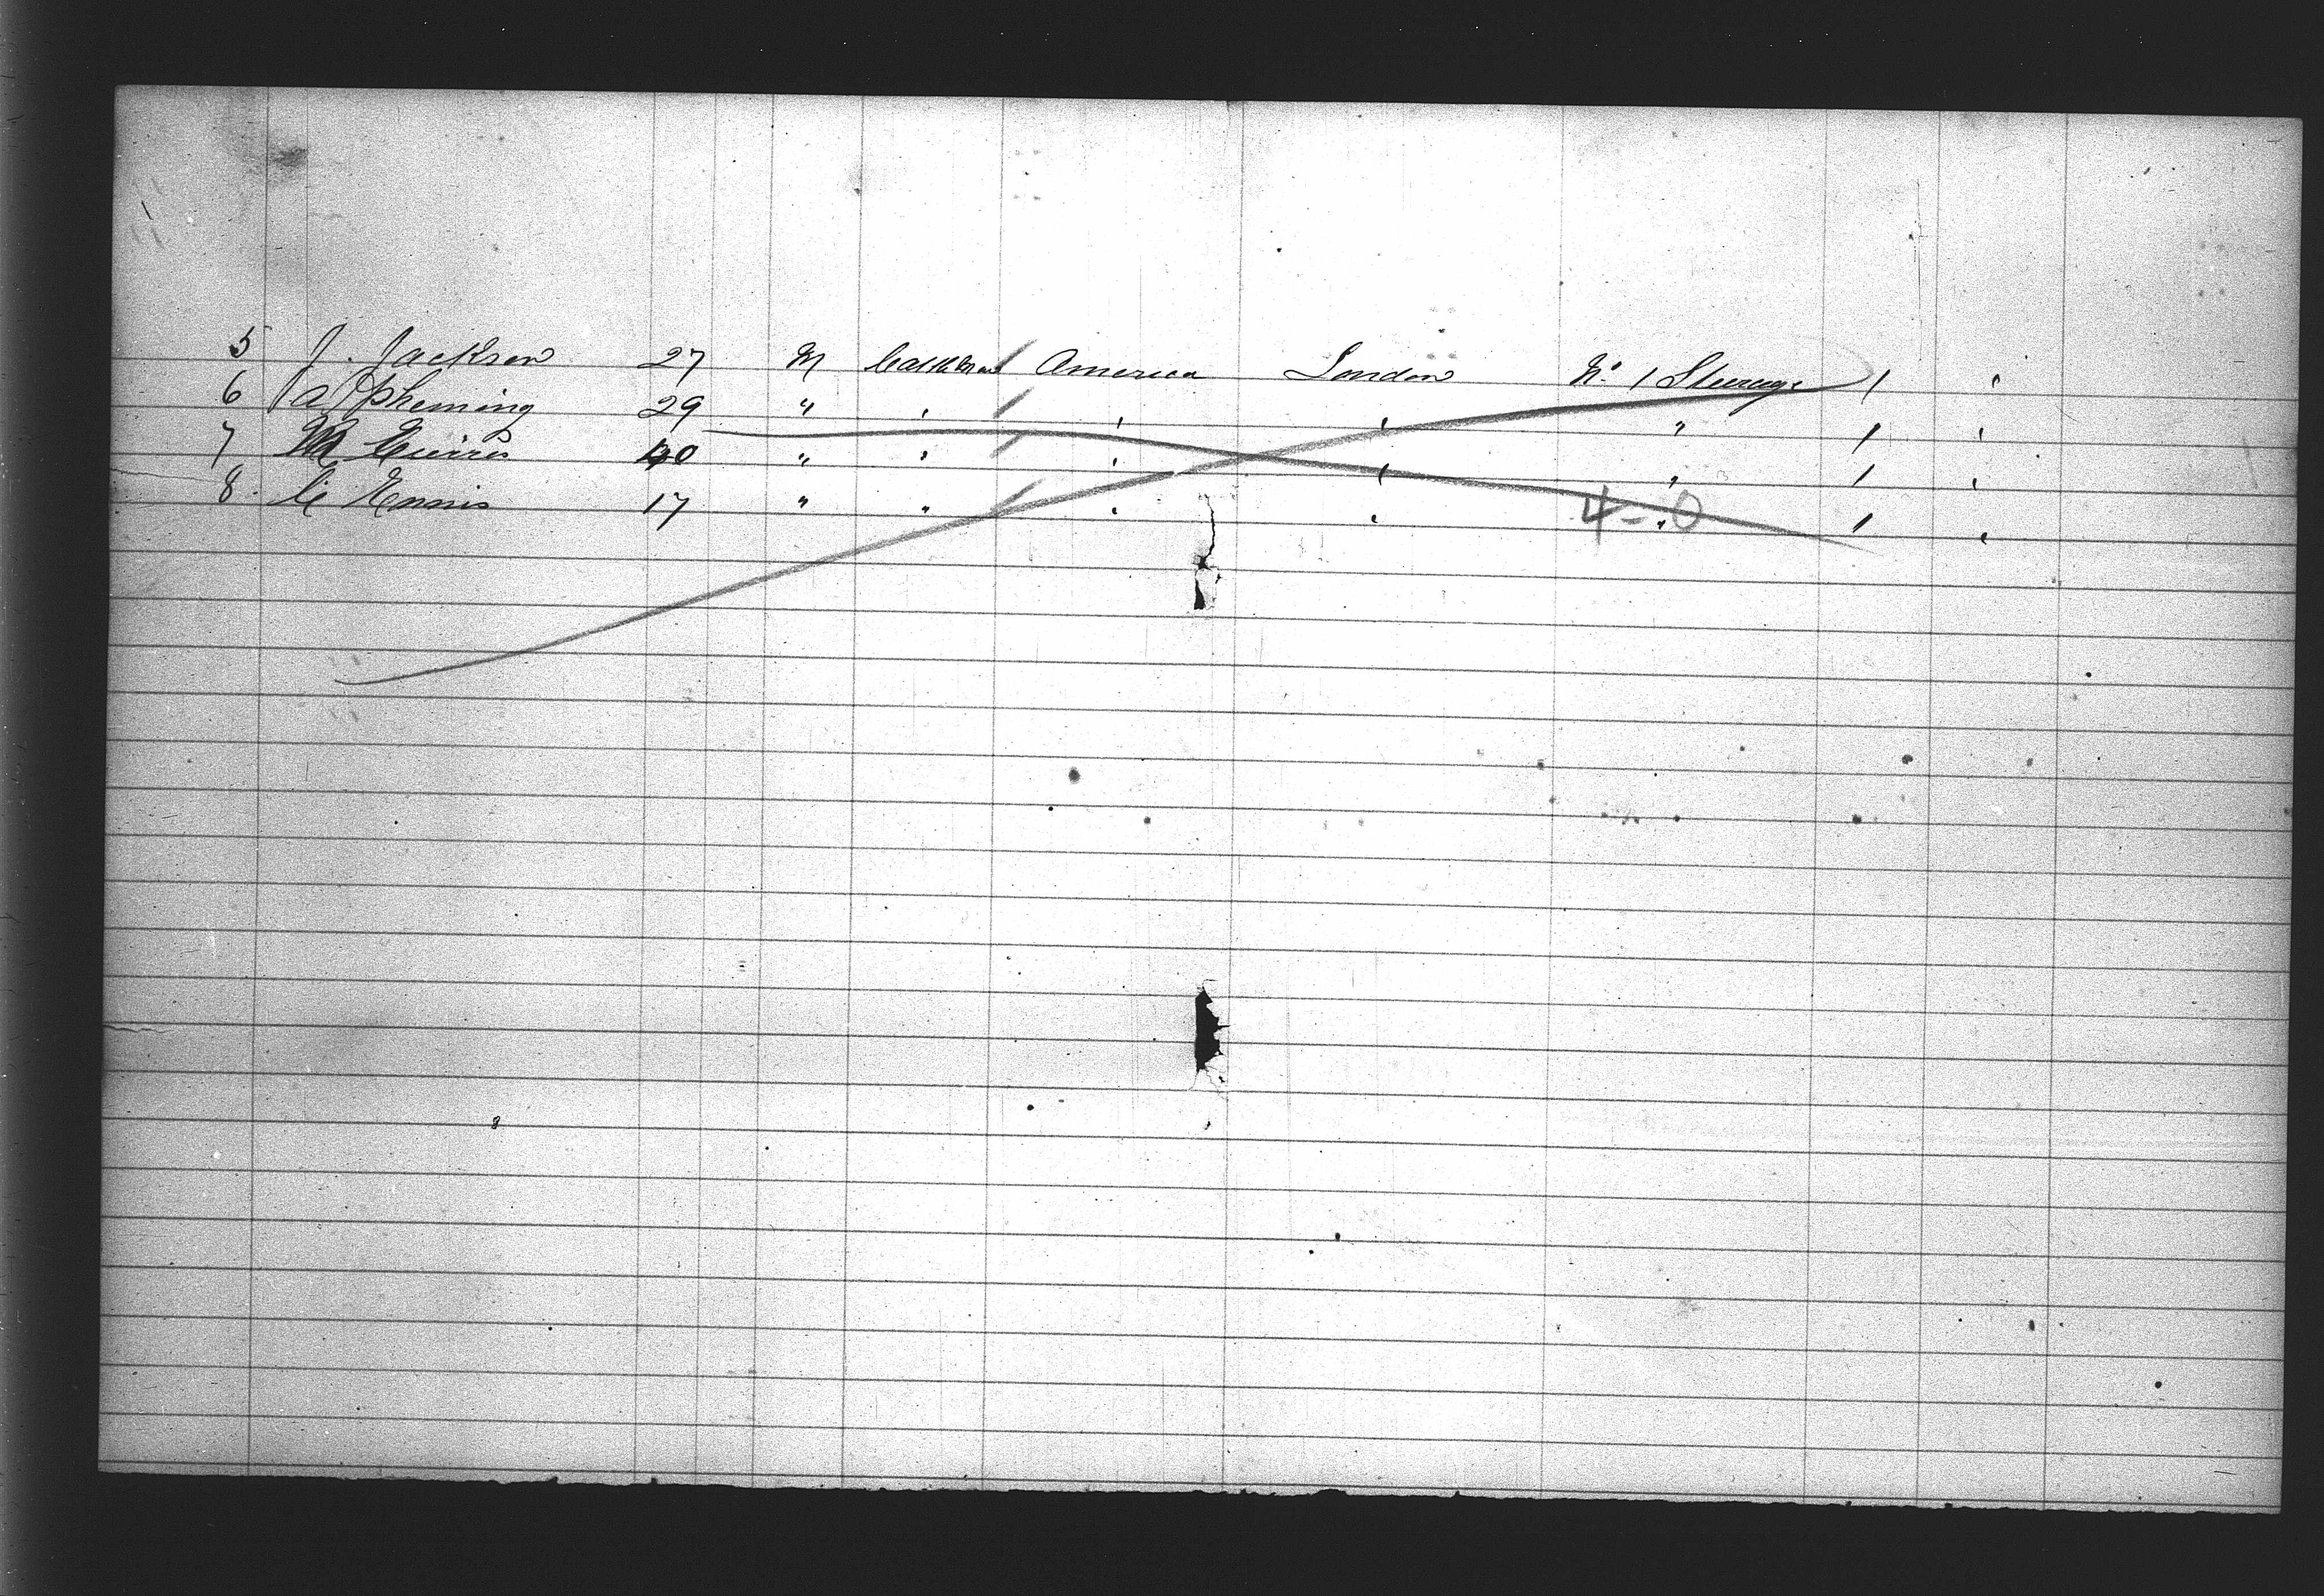 5 J. Jackson 27 M Cattleman America London No. 1 Steerage 1 "
6 A Pheming 29 " " " " " 1 "
7 M " " " " " 1 "
8. C Ennis 17 " " " " " 1 "
4-0